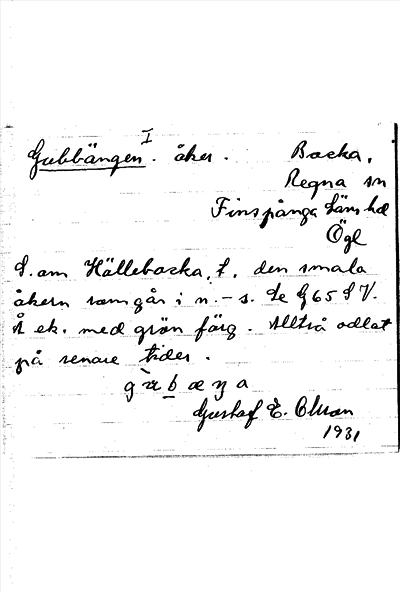 I
Gubbängen. åker. Backa,
Regna sn
Finspånga läns hd
Ögl
S. om Hällebacka, t. den smala
åkern som går i n.-s. Se G 65 S V.
Å ek. med grön färg. Alltså odlat
på senare tider.
Gustaf E. Olsson
1931